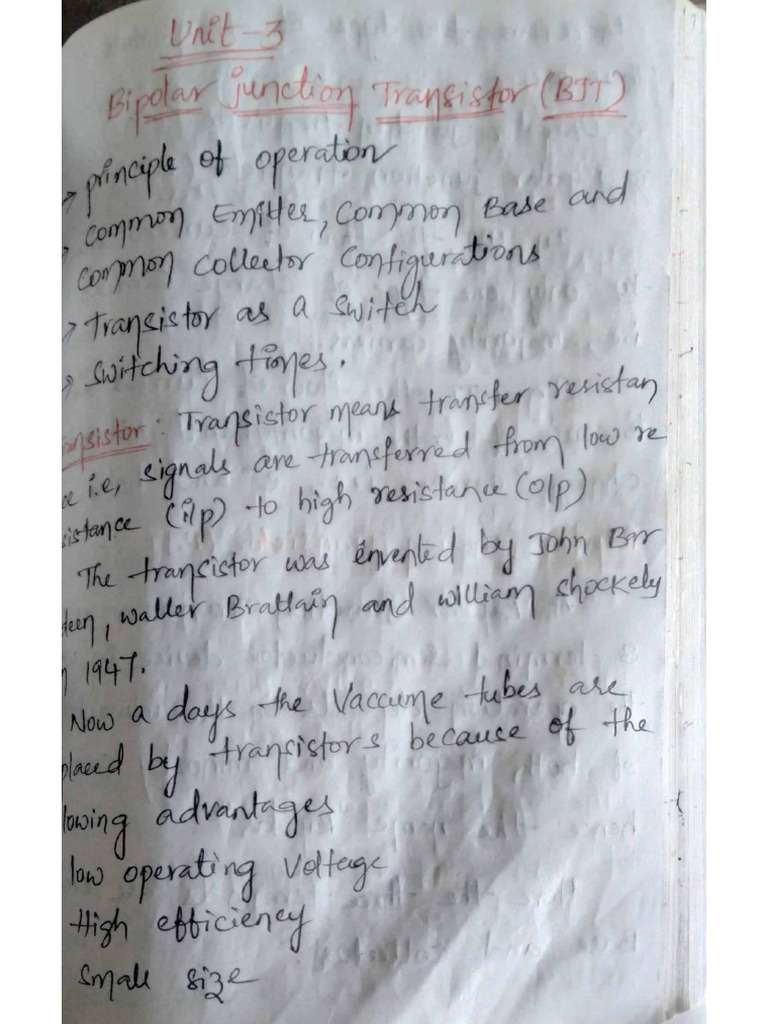 Unit-3
Bipolar junction Transistor (BJT)
> principle of operation
> common Emitter, Common Base and
common collector Configurations
> transistor as a switch
> switching times.
ansistor: Transistor means transfer resistan
ce i.e, signals are transferred from low re
sistance (i/p) to high resistance (o/p)
The transistor was invented by John Bar
deen, walter Brattain and william shockely
n 1947.
Now a days the Vaccume tubes are
placed by transistors because of the
lowing advantages
low operating Voltage
High efficiency
Small size